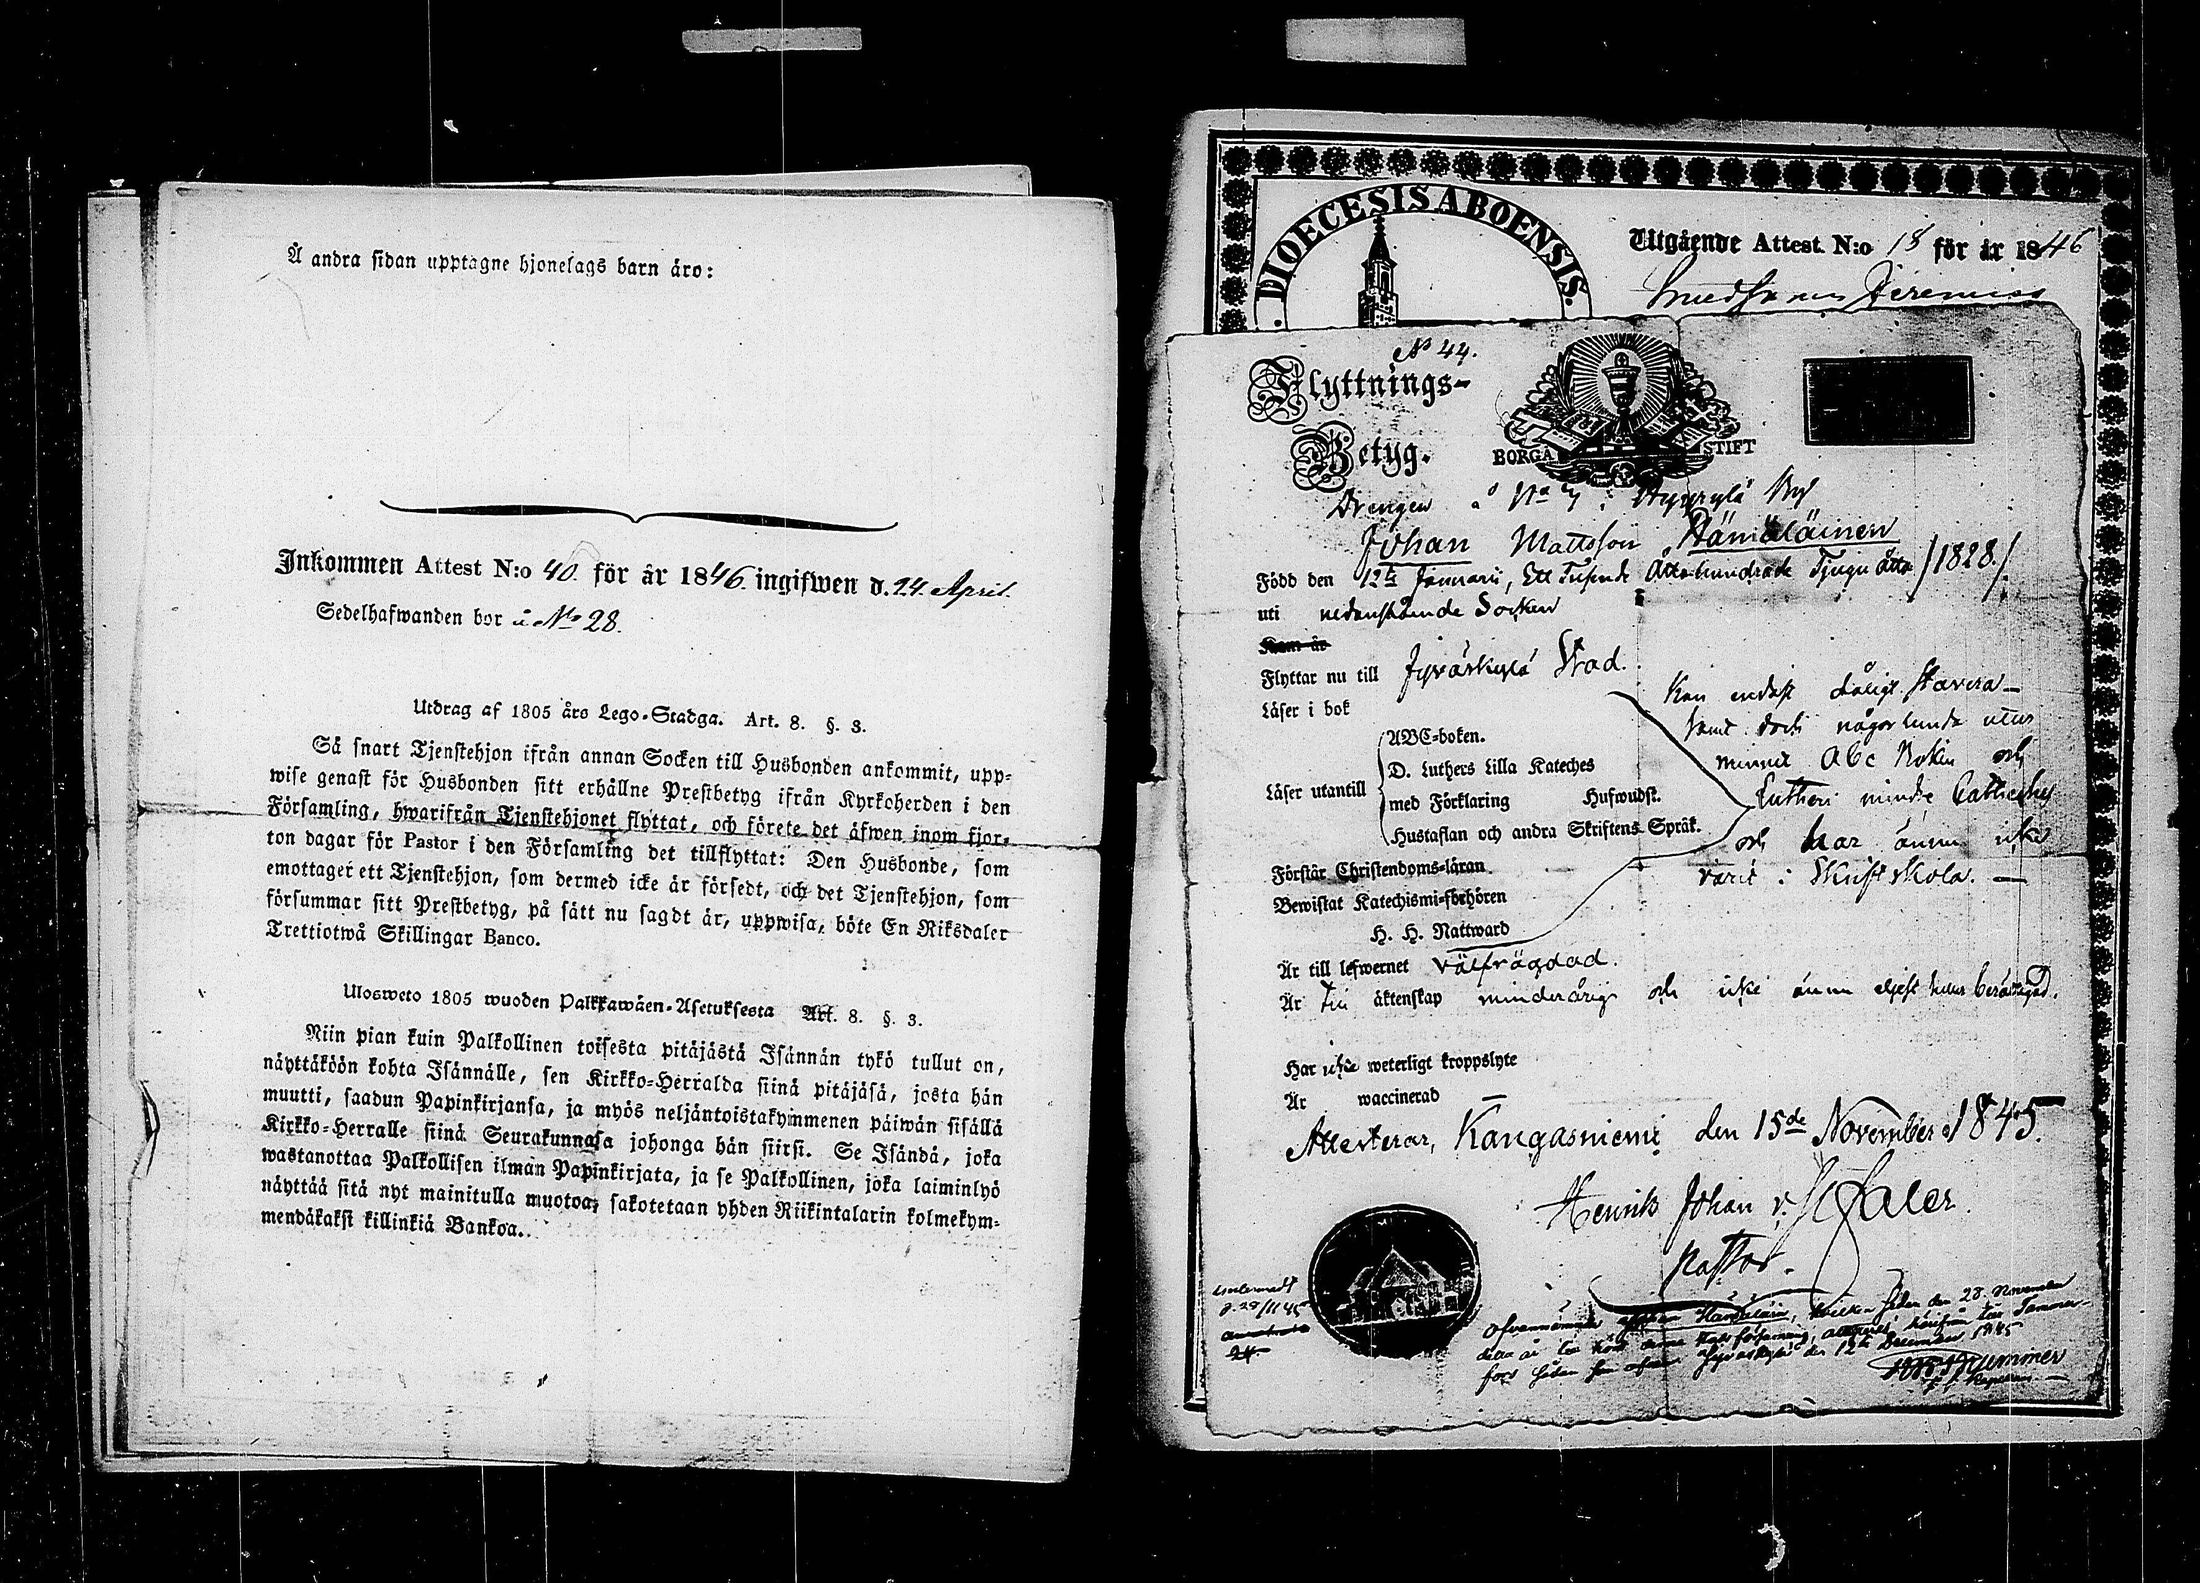 Å andra sidan upptagne hjonelags barn äro:
Inkommen Attest N:o 40. för år 1846. ingifwen d. 24. April.
Sedelhafwanden bor å No 28.
Utdrag af 1805 års Lego-Stadga. Art. 8. §. 3.
Så snart Tjenstehjon ifrån annan Socken till Husbonden ankommit, upp-
wise genast för Husbonden sitt erhållne Prestbetyg ifrån Kyrkoherden i den
Församling, hwarifrån Tjenstehjonet flyttat, och förete det äfwen inom fjor-
ton dagar för Pastor i den Församling det tillflyttat: Den Husbonde, som
emottager ett Tjenstehjon, som dermed icke är försedt, och det Tjenstehjon, som
försummar sitt Prestbetyg, på sätt nu sagdt är, uppwisa, böte En Riksdaler
Trettiotwå Skillingar Banco.
Ulosweto 1805 wuoden Palkkawäen-Asetuksesta Art. 8. §. 3.
Niin pian kuin Palkollinen toisesta pitäjästä Isännän tykö tullut on,
näyttäköön kohta Isännälle, sen Kirkko-Herralda siinä pitäjäsä, josta hän
muutti, saadun Papinkirjansa, ja myös neljäntoistakymmenen päiwän sisällä
Kirkko-Herralle siinä Seurakunnasa johonga hän siirsi. Se Isändä, joka
wastanottaa Palkollisen ilman Papinkirjata, ja se Palkollinen, joka laiminlyö
näyttää sitä nyt mainitulla muotoa; sakotetaan yhden Riikintalarin kolmekym-
mendäkaksi killinkiä Bankoa.
DIOECESIS ABOENSIS.
Utgående Attest. N:o 18 för år 1846
No 44.
Flyttnings-
Betyg.
BORGÅ STIFT
Drengen å No 7 i Hyyrylä By
Johan Mattsson Hämäläinen
Född den 12te Januarii, Ett Tusende Åttahundrade Tjugu åtta /1828./
uti nedanstående Socken
Kom år
Flyttar nu till Jyväskylä Stad.
Läser i bok
Kan endast dåligt stavera
samt dock någorlunda utur
minnet Abc Boken och
Lutheri mindre Catheches
och har ännu icke
varit i Skriftskola.
Läser utantill
ABC-boken.
D. Luthers Lilla Kateches
med Förklaring Hufwudst.
Hustaflan och andra Skriftens Språk.
Förstår Christendoms-läran
Bewistat Katechismi-förhören
H. H. Nattward
Är till lefwernet välfrägdad.
Är till äktenskap minderårig och icke ännu eljest heller berättigad.
Har icke weterligt kroppslyte
Är waccinerad —
Attesterar, Kangasniemi den 15de November 1845.
Henrik Johan
Pastor.
den 28. November
den 12te December 1845